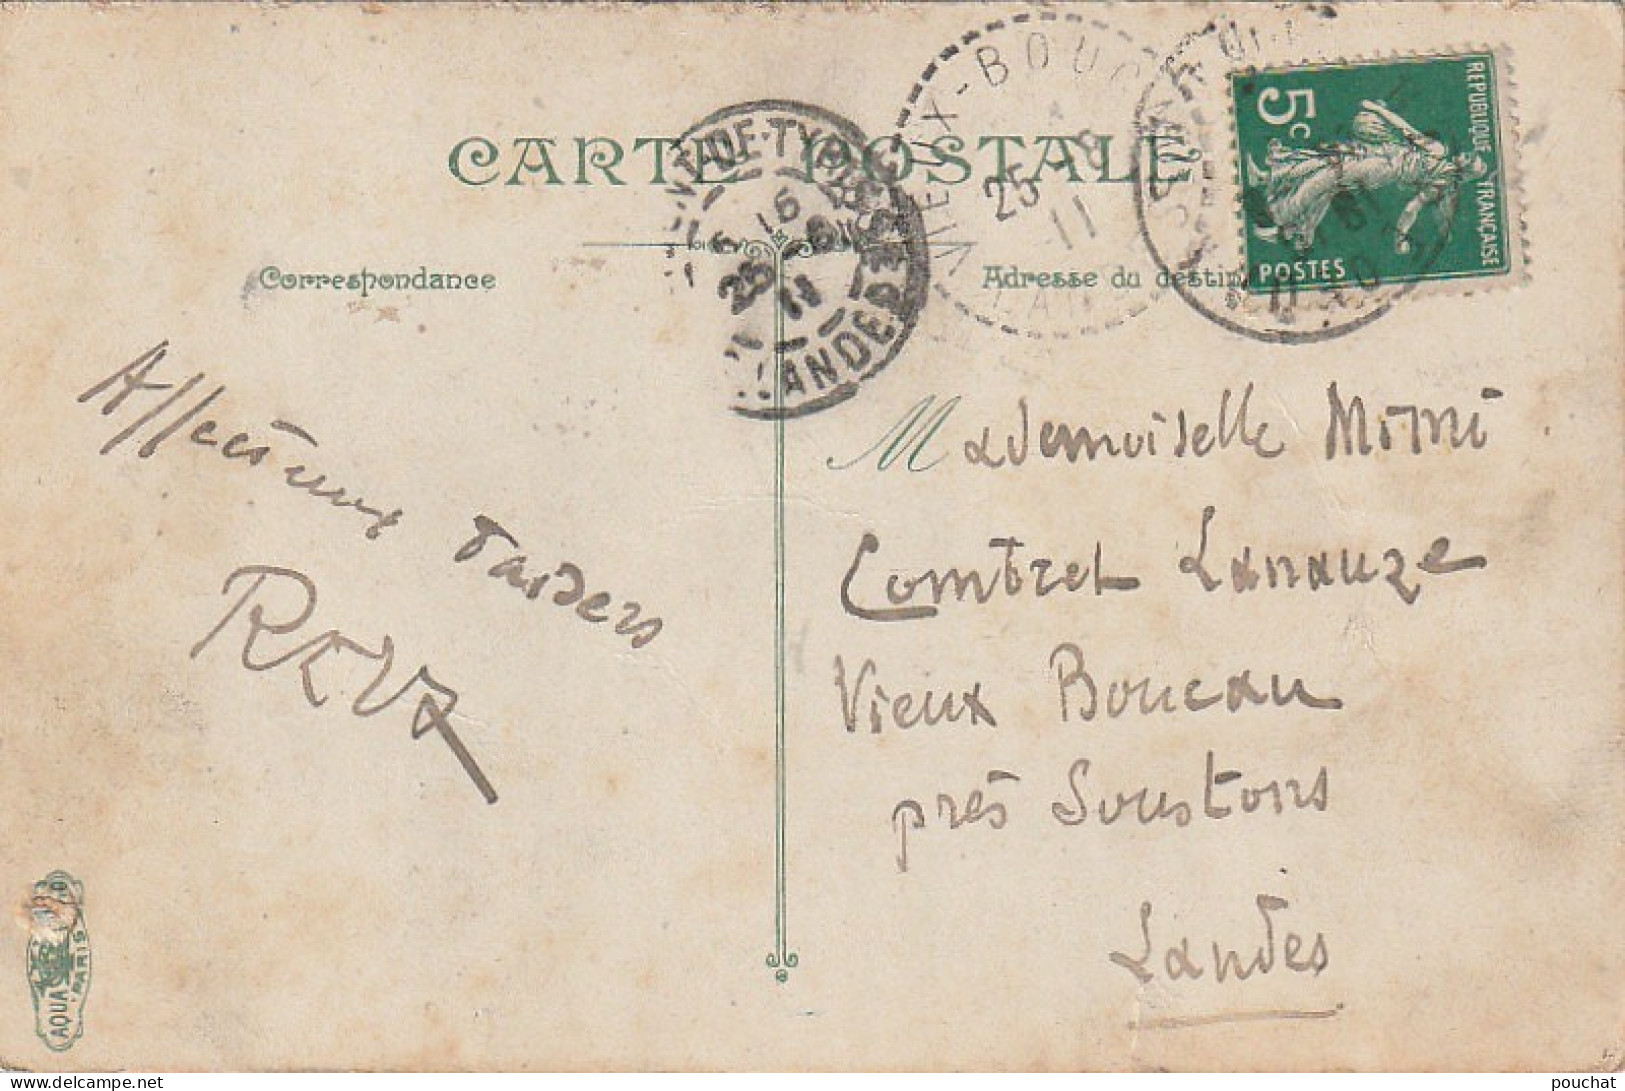 CARTE POSTALE
Correspondance
Adresse du destin
5c
REPUBLIQUE FRANÇAISE
POSTES
VIEUX-BOUC
25 -9
11
LAN
16
25
11
LANDES
Affectueux baisers
Mademoiselle Mimi
Combret Lanauze
Vieux Boucau
près Soustons
Landes
AQUA
PARIS
pouchat